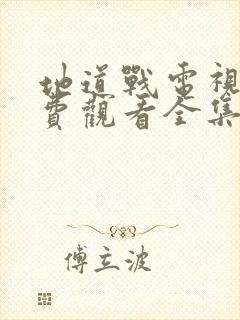 地道戰電視
費觀看全集
傅立波